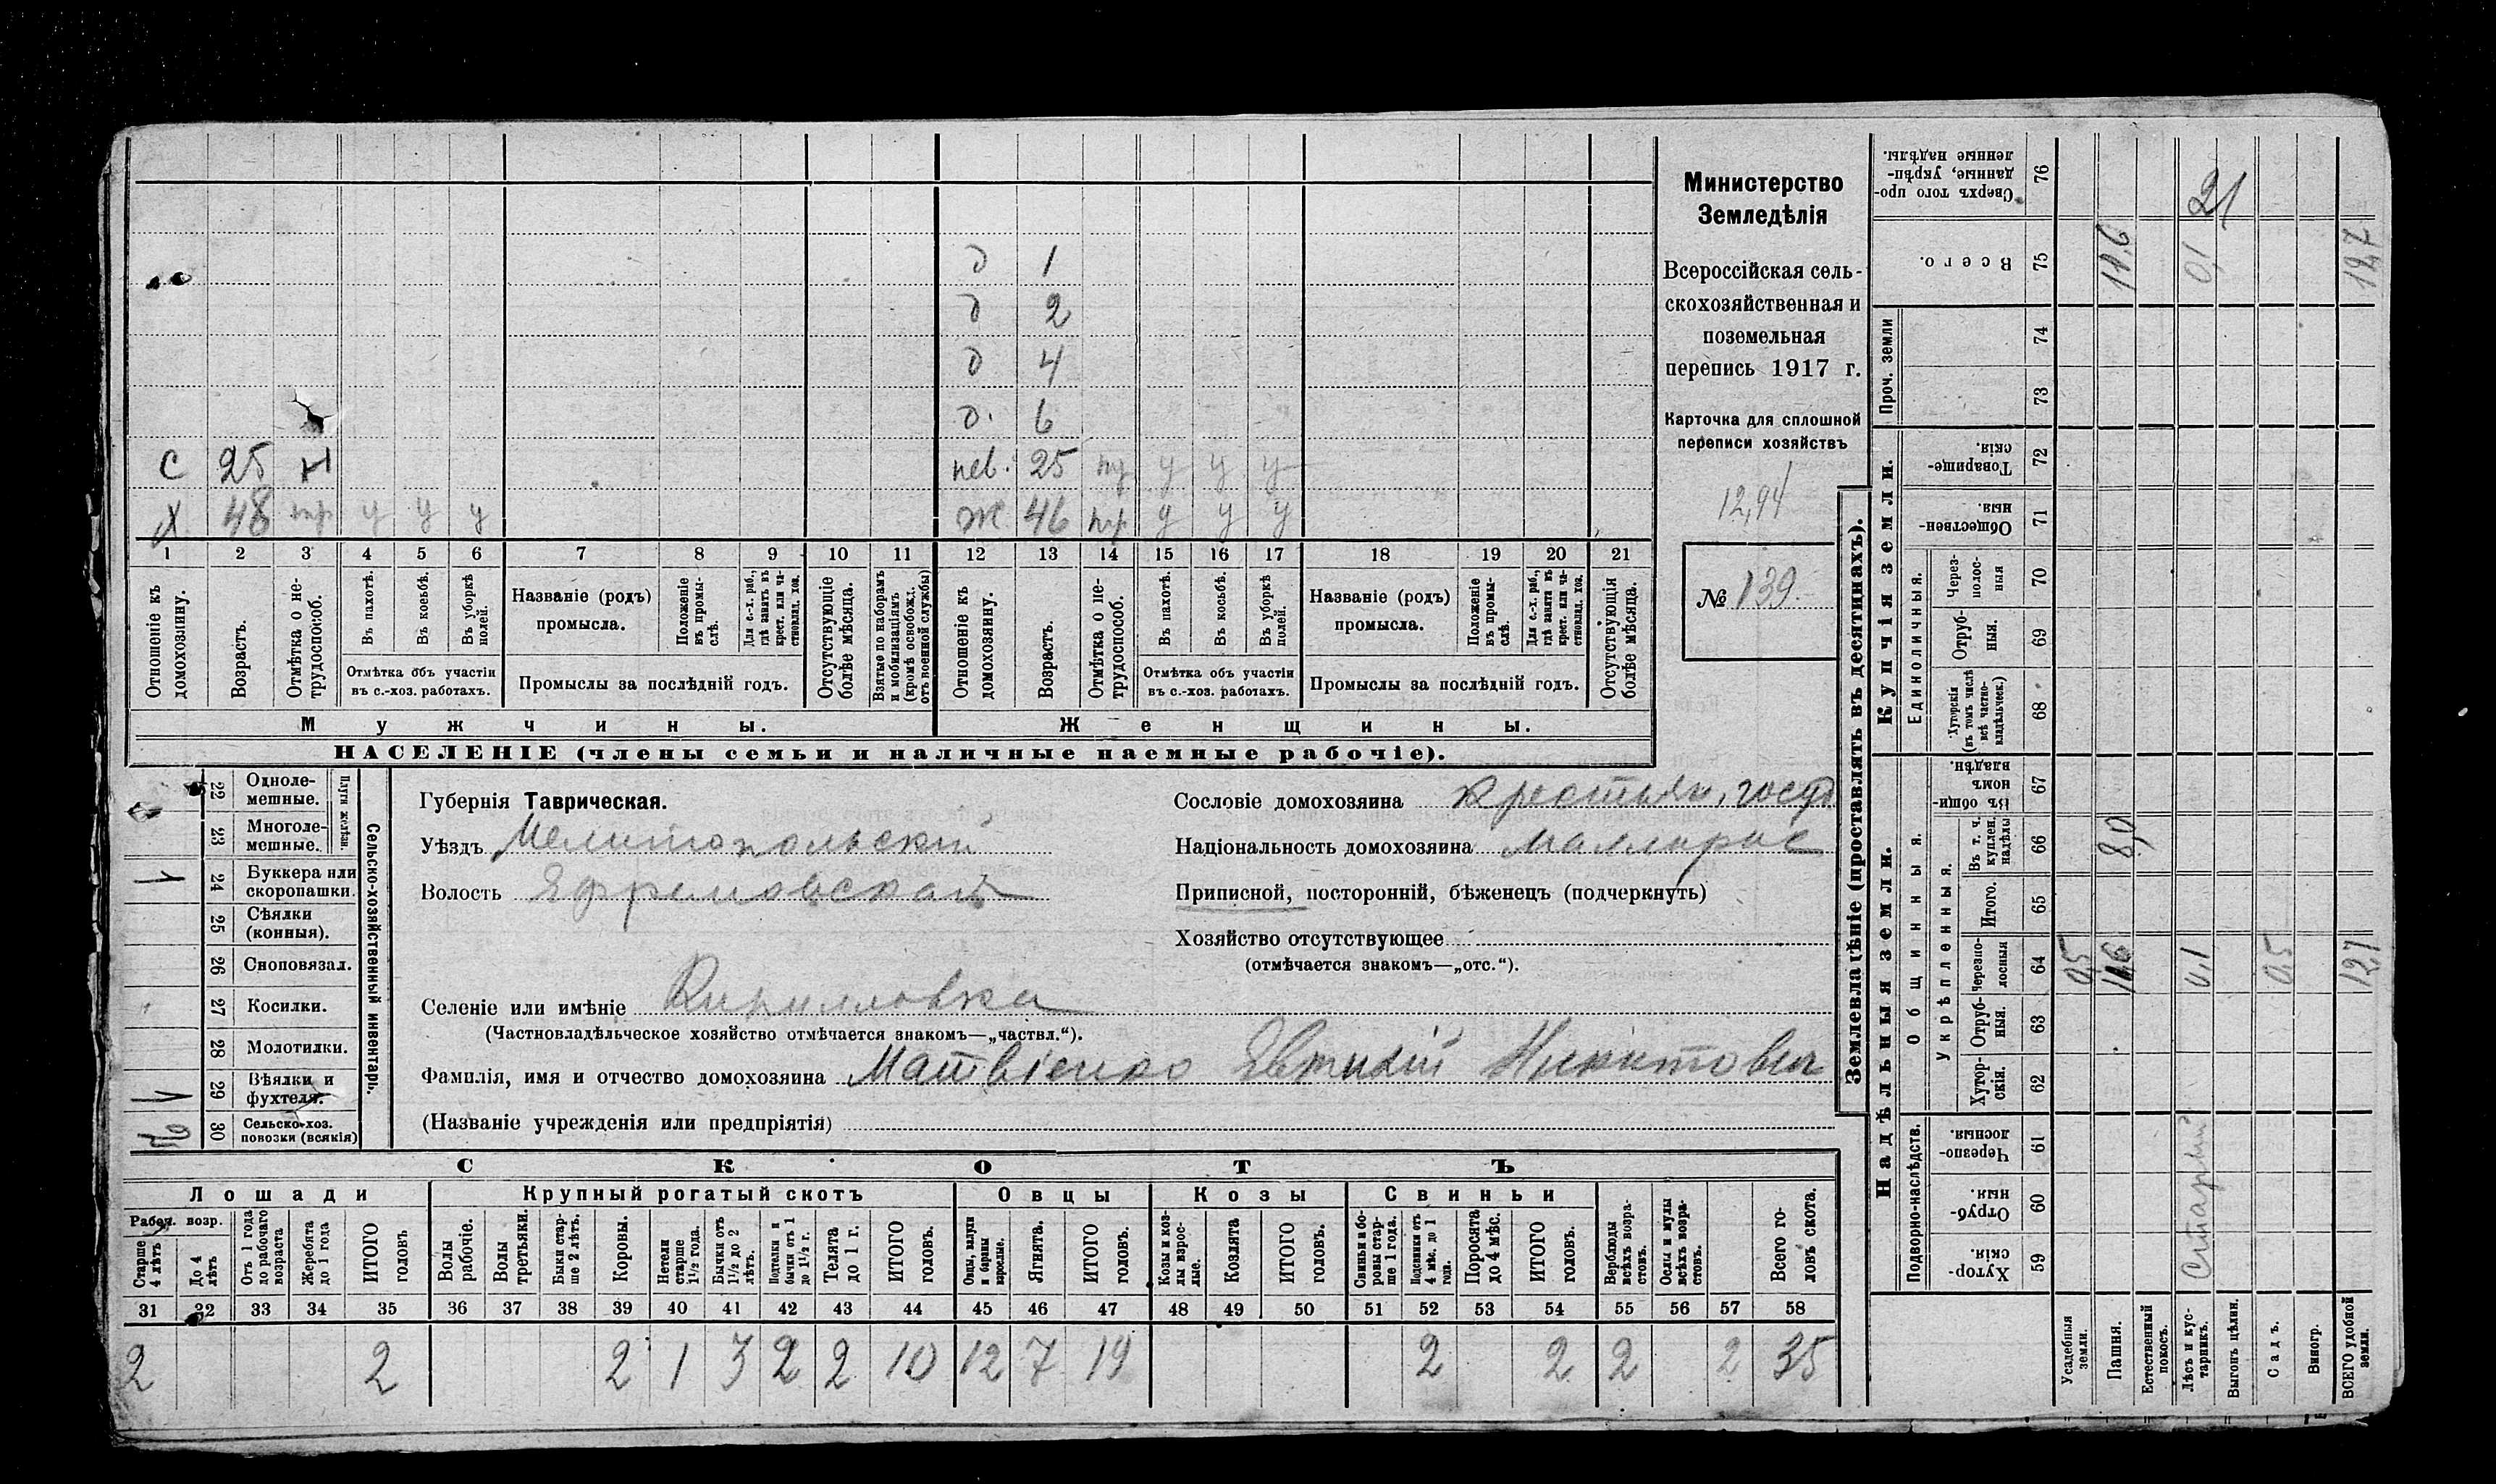 д 1
д 2
д 4
д. 6
с 25 нев. 25 у у у
х 48 у у у ж 46 у у у
1 2 3 4 5 6 7 8 9 10 11 12 13 14 15 16 17 18 19 20 21
Отношеніе къ домохозяину.
Возрастъ.
Отмѣтка о нетрудоспособ.
Въ пахотѣ.
Въ косьбѣ.
Въ уборкѣ полей.
Отмѣтка объ участіи въ с.-хоз. работахъ.
Названіе (родъ) промысла.
Положеніе въ промыслѣ.
Для с.-х. раб., гдѣ занятъ въ крест. или частновлад. хоз.
Промыслы за послѣдній годъ.
Отсутствующіе болѣе мѣсяца.
Взятые по наборамъ и мобилизаціямъ (кромѣ освобожд. отъ военной службы)
Отношеніе къ домохозяину.
Возрастъ.
Отмѣтка о нетрудоспособ.
Въ пахотѣ.
Въ косьбѣ.
Въ уборкѣ полей.
Отмѣтка объ участіи въ с.-хоз. работахъ.
Названіе (родъ) промысла.
Положеніе въ промыслѣ.
Для с.-х. раб., гдѣ занята въ крест. или частновлад. хоз.
Промыслы за послѣдній годъ.
Отсутствующія болѣе мѣсяца.
Мужчины. Женщины.
НАСЕЛЕНІЕ (члены семьи и наличные наемные рабочіе).
Министерство
Земледѣлія
Всероссійская сель-
скохозяйственная и
поземельная
перепись 1917 г.
Карточка для сплошной
переписи хозяйствъ
12,94
№ 139.
Сельско-хозяйственный инвентарь.
Плуги желѣзн.
22 Однолемешные.
23 Многолемешные.
24 Буккера или скоропашки. 1
25 Сѣялки (конныя).
26 Сноповязал.
27 Косилки.
28 Молотилки.
29 Вѣялки и фухтеля. 1
30 Сельско-хоз. повозки (всякія)
Губернія Таврическая.
Уѣздъ Мелитопольскій
Волость Ефремовская
Селеніе или имѣніе Кирилловка
(Частновладѣльческое хозяйство отмѣчается знакомъ—„частвл.“).
Фамилія, имя и отчество домохозяина Матвіенко Евтихій Никитовъ
(Названіе учрежденія или предпріятія)
Сословіе домохозяина крестьян. госуд
Національность домохозяина малорос
Приписной, посторонній, бѣженецъ (подчеркнуть)
Хозяйство отсутствующее
(отмѣчается знакомъ—„отс.“).
СКОТЪ
Лошади Крупный рогатый скотъ Овцы Козы Свиньи
Рабоч. возр.
Старше 4 лѣтъ
До 4 лѣтъ
Отъ 1 года до рабочаго возраста
Жеребята до 1 года
ИТОГО головъ
Волы рабочіе.
Волы третьяки.
Быки старше 2 лѣтъ.
Коровы.
Нетели старше 1½ года.
Бычки отъ 1½ до 2 лѣтъ.
Подтелки и бычки отъ 1 до 1½ г.
Телята до 1 г.
ИТОГО головъ.
Овцы, валухи и бараны взрослые.
Ягнята.
ИТОГО головъ.
Козы и козлы взрослые.
Козлята
ИТОГО головъ.
Свиньи и боровы старше 1 года.
Подсвинки отъ 4 мѣс. до 1 года.
Поросята до 4 мѣс.
ИТОГО головъ.
Верблюды всѣхъ возрастовъ.
Ослы и мулы всѣхъ возрастовъ.
Всего головъ скота.
31 32 33 34 35 36 37 38 39 40 41 42 43 44 45 46 47 48 49 50 51 52 53 54 55 56 57 58
2 2 2 1 3 2 2 10 12 7 19 2 2 2 2 35
Землевладѣніе (проставлять въ десятинахъ).
Надѣльныя земли.
Купчія земли.
Подворно-наслѣдств.
Общинныя.
Укрѣпленныя.
Единоличныя.
Проч. земли
59 Хуторскія.
60 Отрубныя.
61 Черезполосныя.
62 Хуторскія.
63 Отрубныя.
64 Черезполосныя 0,5 11,6 0,1 0,5 12,7
65 Итого.
66 Въ т. ч. куплен. надѣлы 8,0
67 Въ общинномъ владѣн.
68 Хуторскія (въ томъ числѣ всѣ частновладѣльческ.)
69 Отрубныя.
70 Черезполосныя
71 Общественныя.
72 Товарищескія.
73
74
75 Всего. 11,6 0,1 12,7
76 Сверхъ того проданные, укрѣпленные надѣлы. 21
Старый
Усадебныя земли.
Пашня.
Естественный покосъ.
Лѣсъ и кустарникъ.
Выгонъ цѣлин.
Садъ.
Виногр.
ВСЕГО удобной земли.